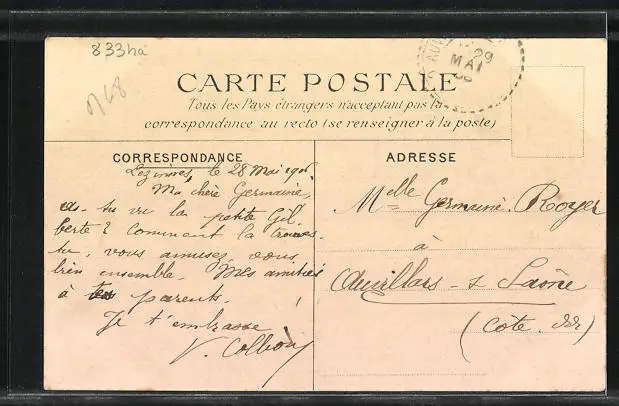 833ha
CARTE POSTALE
Tous les Pays étrangers n'acceptant pas la
correspondance au recto (se renseigner à la poste)
29
MAI
CORRESPONDANCE
ADRESSE
le 28 Mai
Ma chère Germaine,
as-tu vu la petite Gil
berte? Comment la trouves-
tu, vous amusez vous
bien ensemble. Mes amitiés
à tes parents.
Je t'embrasse
V.
Melle Germaine Royer
à
Auvillars - s Saône
(Côte d'Or)